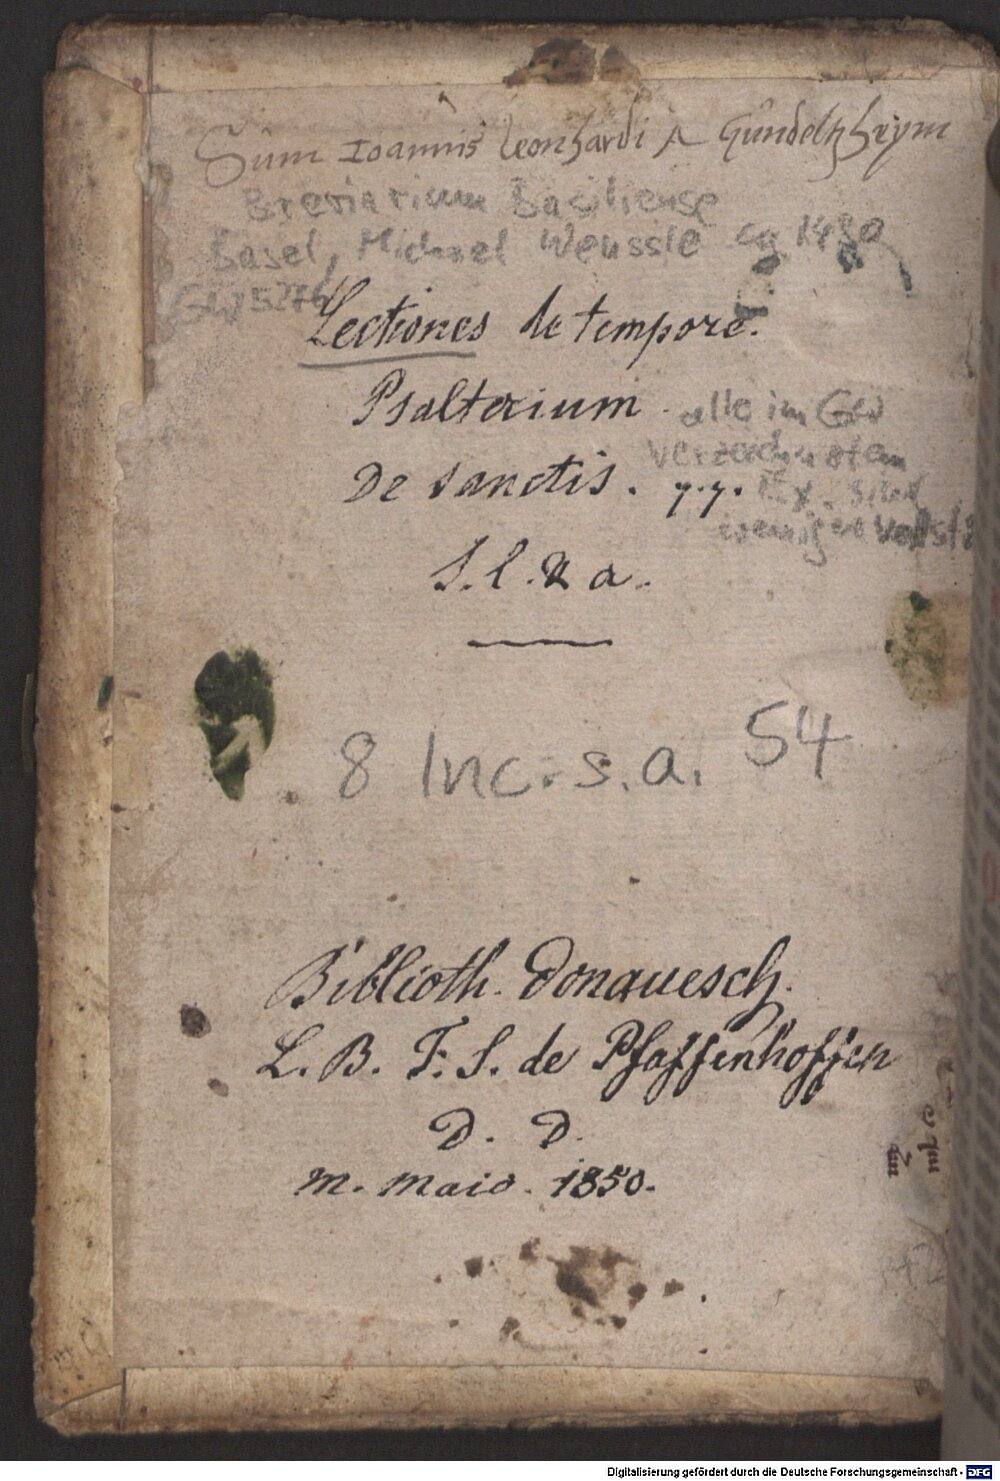 Sum Ioannis Leonhardi A Gundeltzheym
Breviarium Basiliense
Basel, Michael Wenssle ca 1480
GW 5276
Lectiones de tempore.
Psalterium.
De sanctis. y.y.
alle im GW
verzeichneten
Ex. sind
weniger vollst
S. l. & a.
8 Inc. s. a. 54
Biblioth. Donauesch.
L. B. F. S. de Pfaffenhoffen
D. D.
m. maio. 1850.
Digitalisierung gefördert durch die Deutsche Forschungsgemeinschaft - DFG